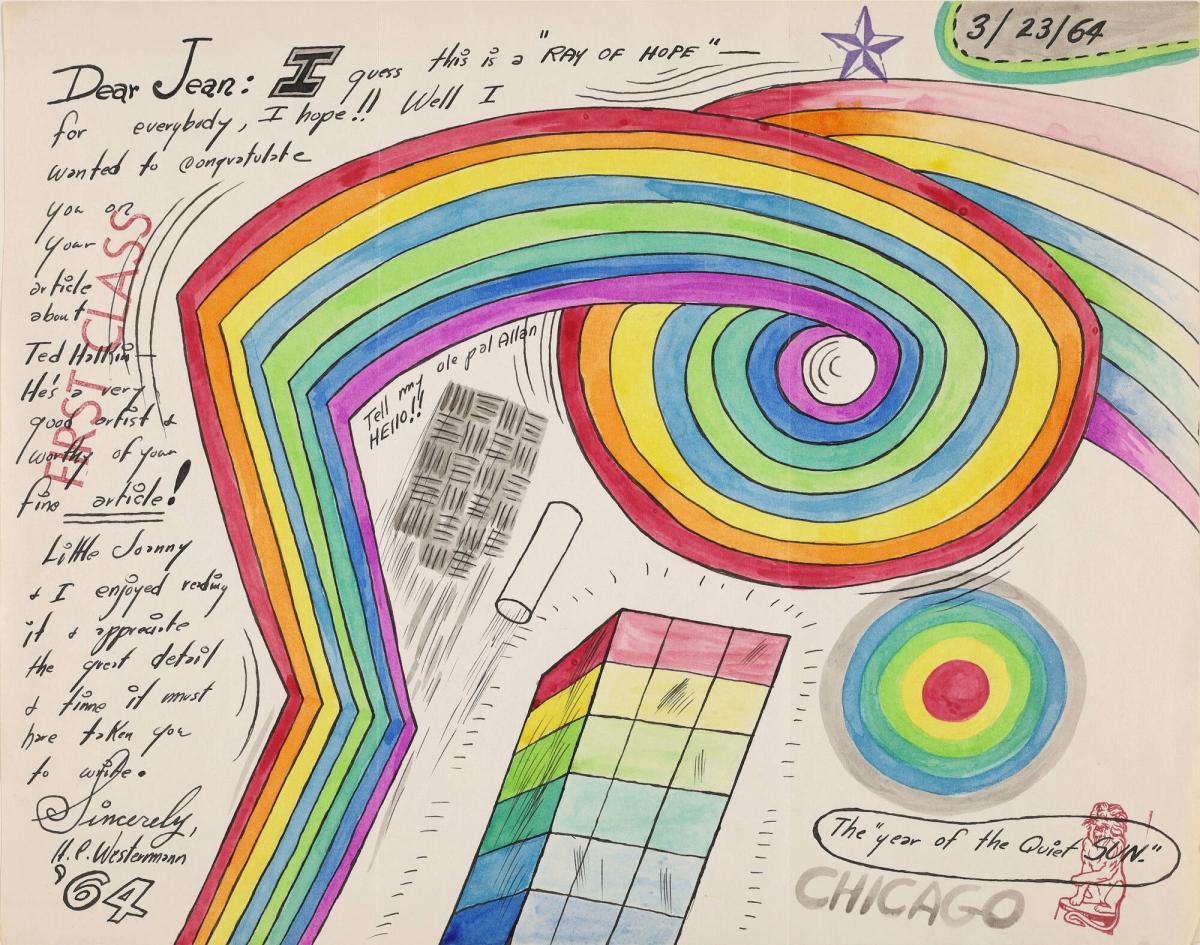 3/23/64
Dear Jean: I guess this is a "RAY OF HOPE"—
for everybody, I hope!! Well I
wanted to congratulate
you on
your
article
about
Ted Halkin—
He's a very
good artist &
worthy of your
fine article!
Little Joanny
& I enjoyed reading
it & appreciate
the great detail
& time it must
have taken you
to write.
Sincerely,
H.C. Westermann
'64
FIRST CLASS
Tell my ole pal Allan
HEllO!!
The "year of the Quiet SUN."
CHICAGO